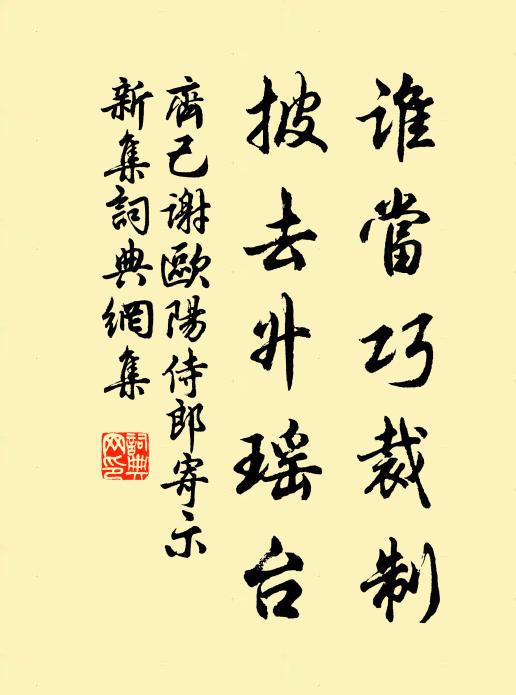 誰當巧裁制
披去升瑶台
齊己谢歐陽侍郎寄示
新集詞典網集
詞典網印